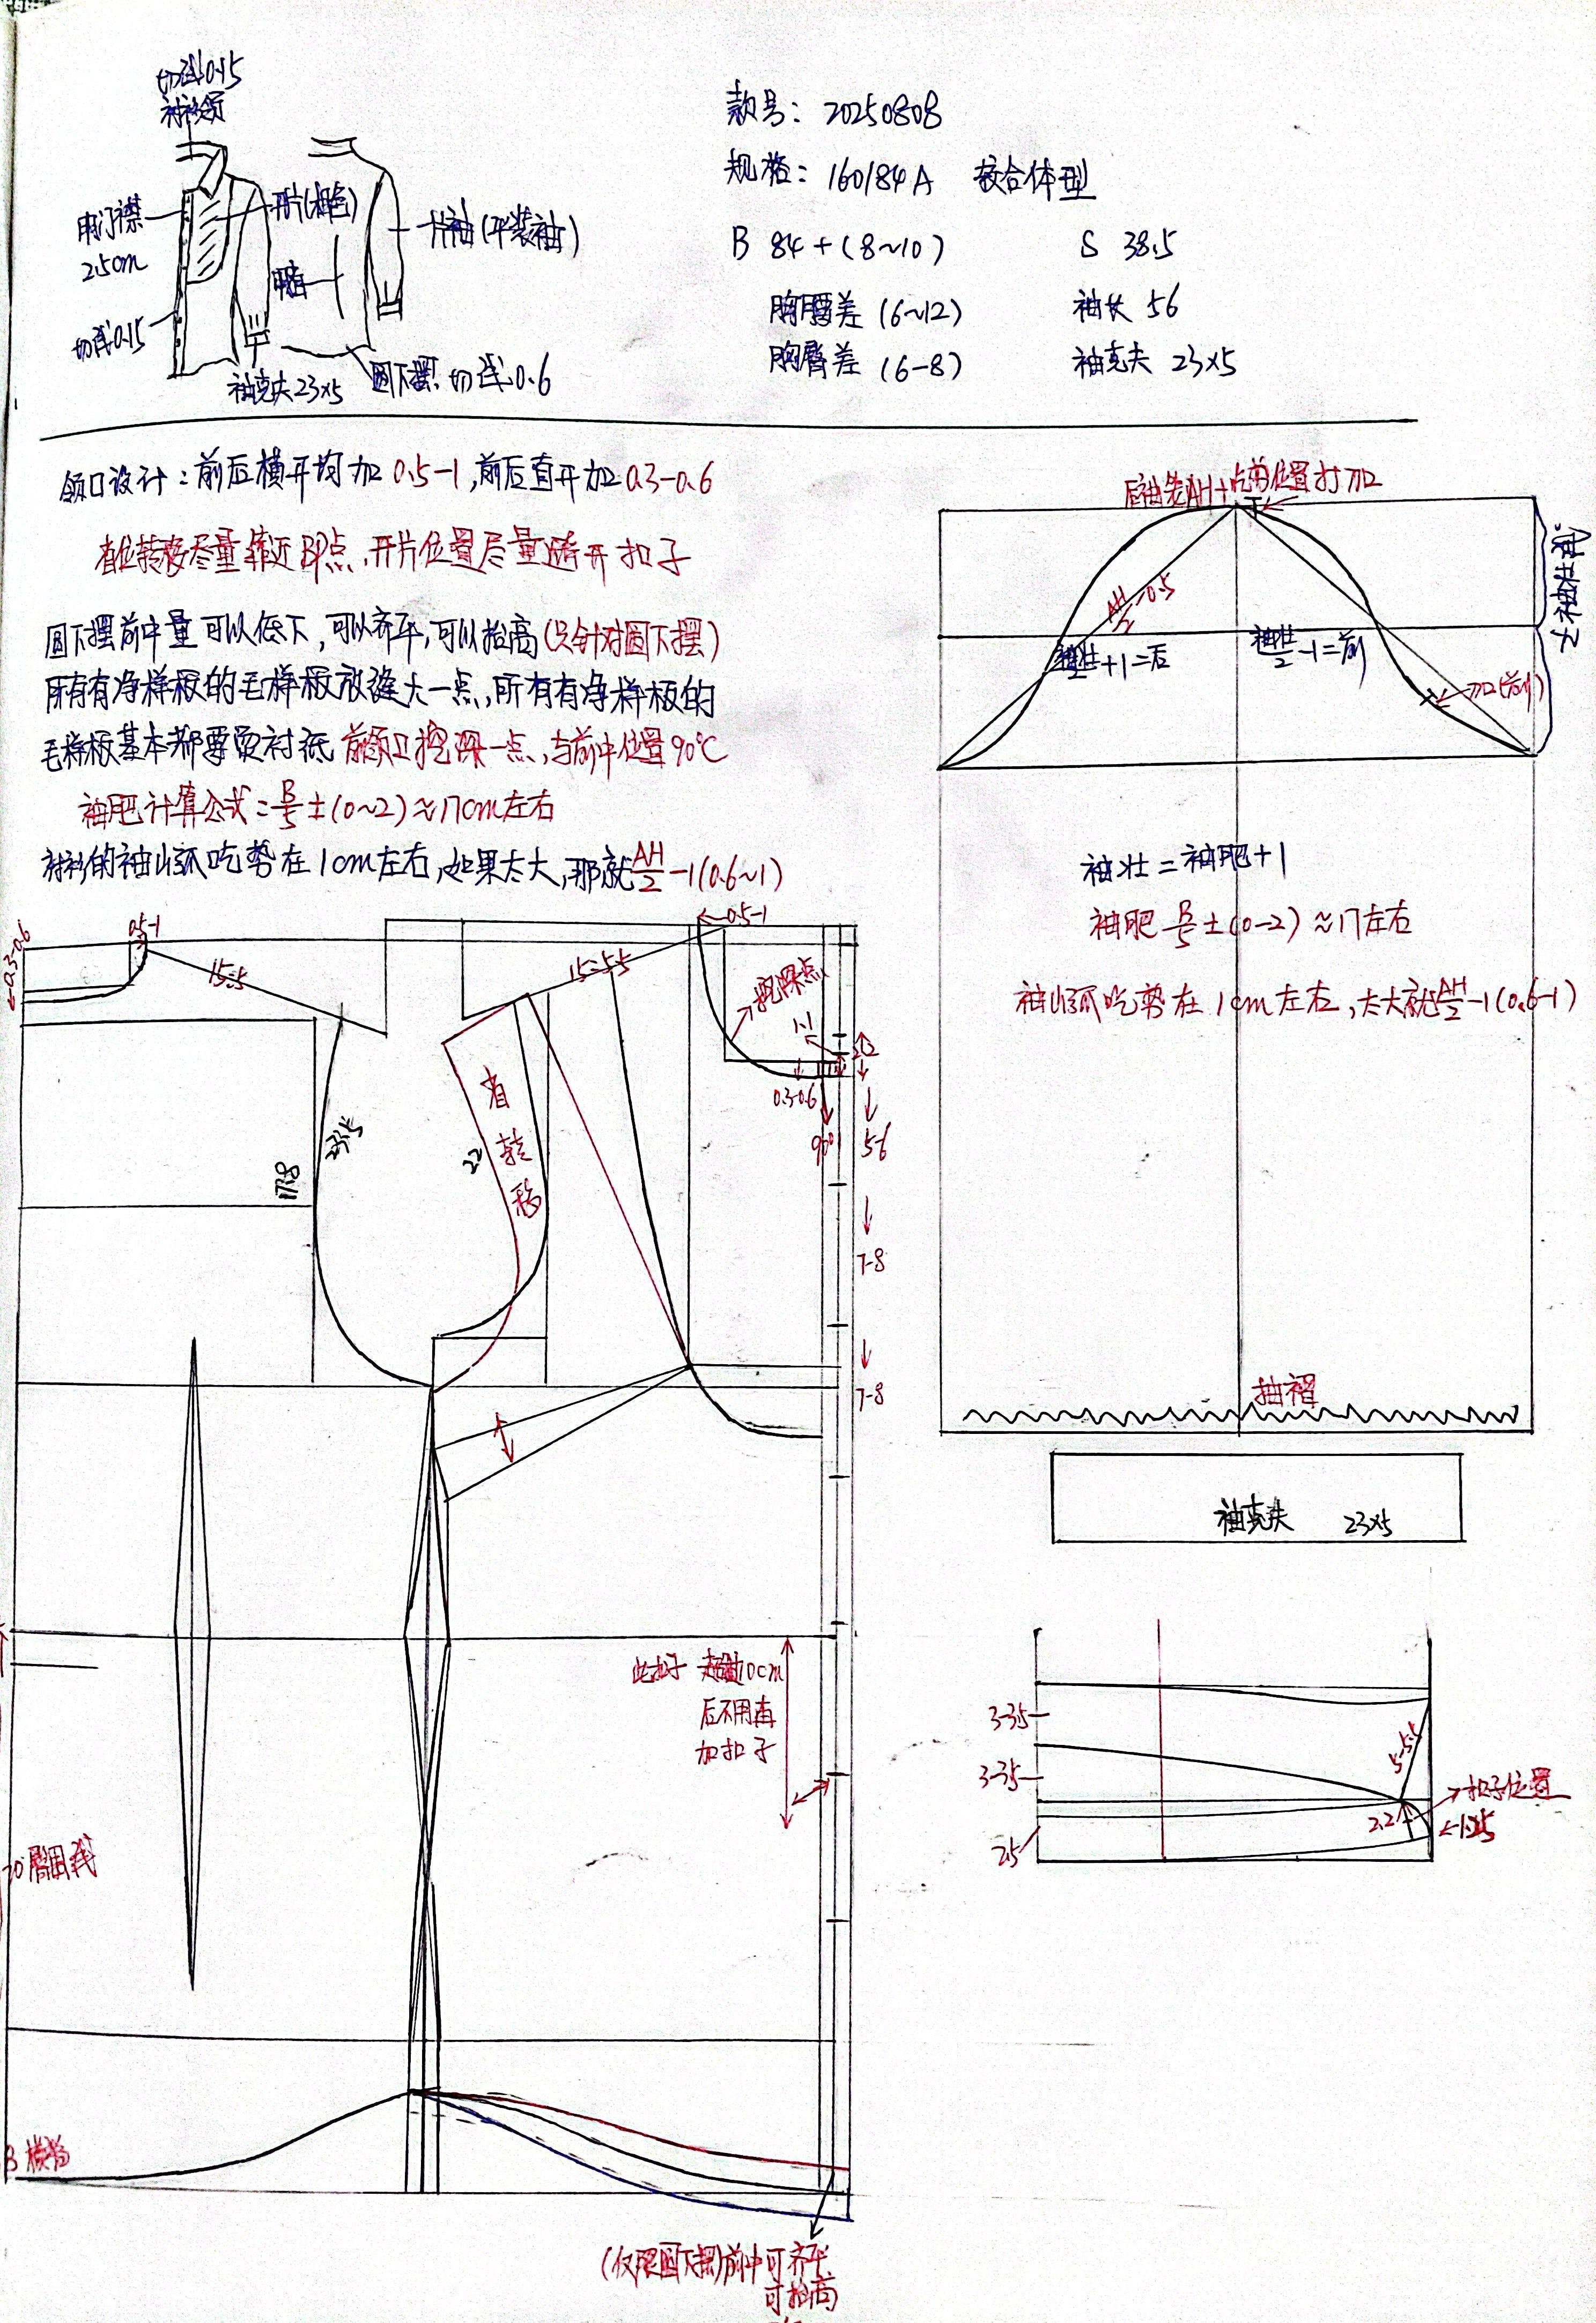 切线0.15
衬衫领
用门襟
2.5cm
开片(撞色)
一片袖(平装袖)
切线0.15
袖克夫23×5
圆下摆 切线0.6
款号: 20250808
规格: 160/84A 较合体型
B 84+(8~10)
S 38.5
胸腰差 (6~12)
袖长 56
胸臀差 (6-8)
袖克夫 23×5
领口设计:前后横开均加0.5-1,前后直开加0.3-0.6
省位转移尽量靠近BP点,开片位置尽量避开扣子
圆下摆前中量可以低下,可以齐平,可以抬高(只针对圆下摆)
所有有净样板的毛样板放缝大一点,所有有净样板的
毛样板基本都要烫衬纸 前领口挖深一点,与前中位置90°C
袖肥计算公式=B/5±(0~2)≈17cm左右
衬衫的袖山弧吃势在1cm左右,如果太大,那就AH/2-1(0.6~1)
AH/2-0.5
袖壮/2+1=后
袖壮/2-1=前
刀口(前)
袖壮=袖肥+1
袖肥B/5±(0-2)≈17左右
袖山弧吃势在1cm左右,太大就AH/2-1(0.6-1)
0.3-0.6
0.5-1
15:5
15:5.5
0.5-1
挖深点
1.1
2.2
0.3-0.6
90°
5.6
省转移
22
23.5
17.8
7-8
7-8
抽褶
袖克夫 23×5
此扣子超出10cm
后不用再
加扣子
臀围线
3-3.5
3-3.5
2.5
5-5.5
2.2
扣子位置
(仅限圆下摆)前中可齐平
可抬高